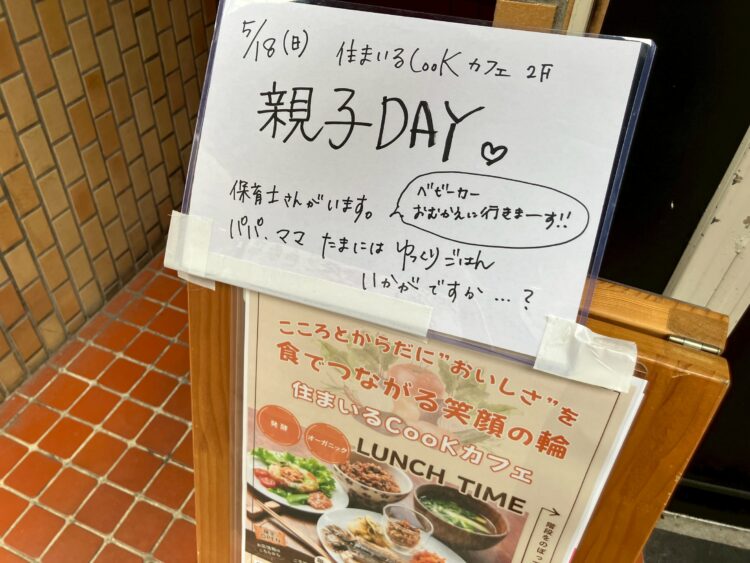 5/18(日) 住まいるCooKカフェ 2F
親子DAY♡
保育士さんがいます。
ベビーカー
おむかえに行きまーす!!
パパ、ママ たまには ゆっくりごはん
いかがですか…?
こころとからだに"おいしさ"を
食でつながる笑顔の輪
住まいるCooKカフェ
発酵
オーガニック
LUNCH TIME
階段をのぼっ